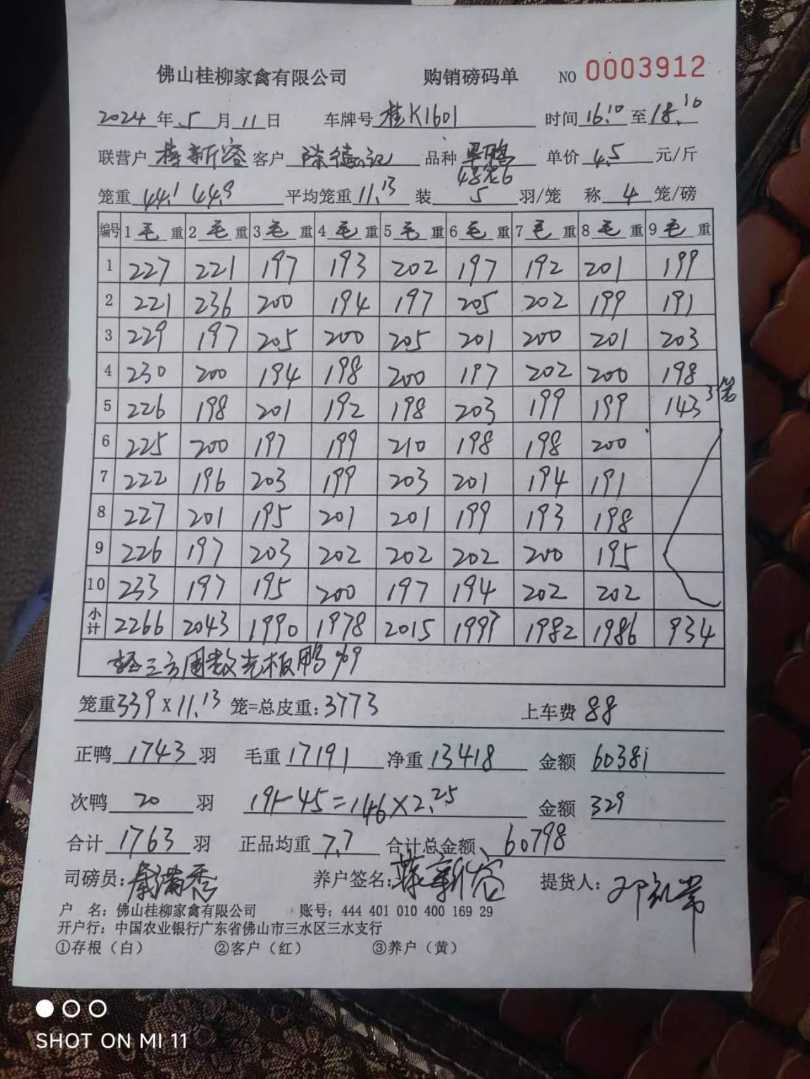 佛山桂柳家禽有限公司 购销磅码单 NO 0003912
2024 年 5 月 11 日 车牌号 桂K1601 时间 16:10 至 18:10
联营户 新容 客户 陈德记 品种 单价 4.5 元/斤
笼重 44.1 44.9 平均笼重 11.13 装 5 羽/笼 称 4 笼/磅
编号 1 毛 重 2 毛 重 3 毛 重 4 毛 重 5 毛 重 6 毛 重 7 毛 重 8 毛 重 9 毛 重
1 227 221 197 193 202 197 192 201 199
2 221 236 200 194 197 205 202 199 191
3 229 197 205 200 205 201 200 201 203
4 230 200 194 198 200 197 202 200 198
5 226 198 201 192 198 203 199 199 143 3笼
6 225 200 197 199 210 198 198 200
7 222 196 203 199 203 201 194 191
8 227 201 195 201 201 199 193 198
9 226 197 203 202 202 202 200 195
10 233 197 195 200 197 194 202 202
小计 2266 2043 1990 1978 2015 1997 1982 1986 934
笼重 339 X 11.13 笼=总皮重: 3773 上车费 88
正鸭 1743 羽 毛重 17191 净重 13418 金额 60381
次鸭 20 羽 191-45=146×2.25 金额 329
合计 1763 羽 正品均重 7.7 合计总金额 60798
司磅员: 养户签名: 新容 提货人:
户 名: 佛山桂柳家禽有限公司 账号: 444 401 010 400 169 29
开户行: 中国农业银行广东省佛山市三水区三水支行
①存根（白） ②客户（红） ③养户（黄）
SHOT ON MI 11